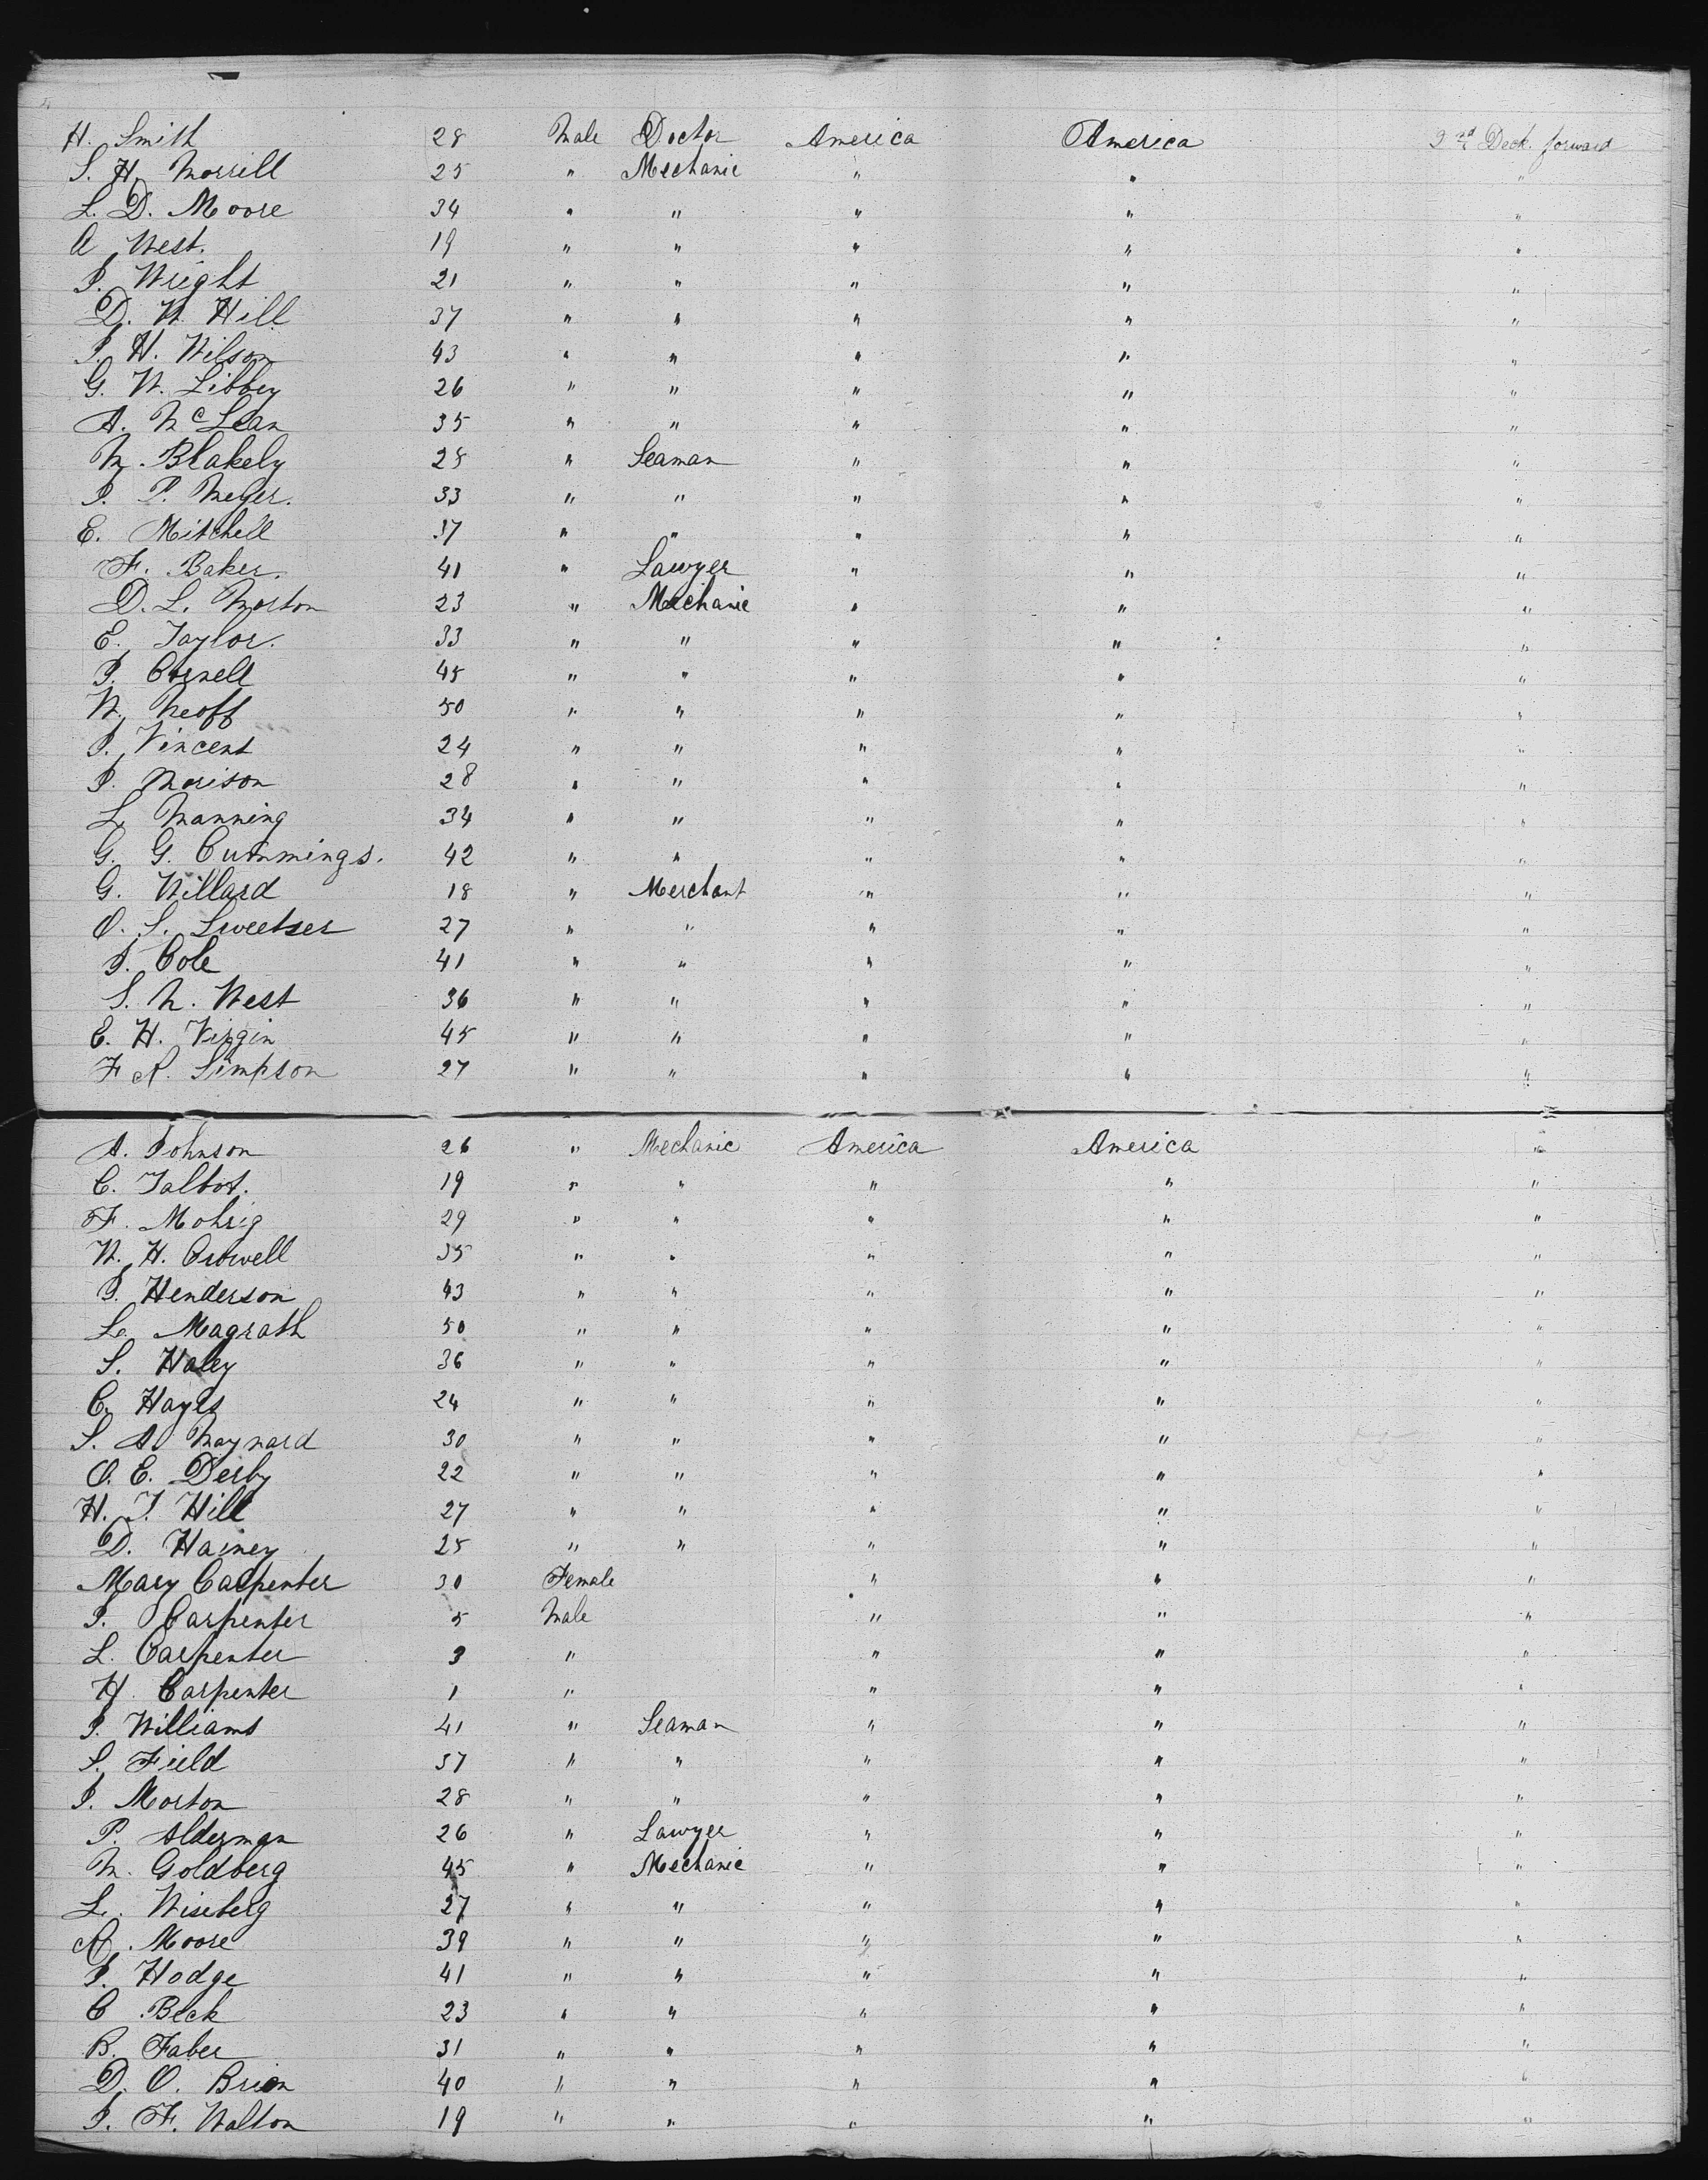 H. Smith 28 Male Doctor America America 2nd Deck forward
S. H. Morrill 25 " Mechanic " " "
L. D. Moore 34 " " " " "
A West. 19 " " " " "
J. Wright 21 " " " " "
D. W. Hill 37 " " " " "
J. H. Wilson 43 " " " " "
G. W. Libbey 26 " " " " "
A. McLean 35 " " " " "
M. Blakely 28 " Seaman " " "
J. P. Meyer. 33 " " " " "
E. Mitchell 37 " " " " "
F. Baker. 41 " Lawyer " " "
D. L. Morton 23 " Mechanic " " "
E. Taylor. 33 " " " " "
J. Cornell 45 " " " " "
W. Neoff 50 " " " " "
J. Vincent 24 " " " " "
J. Morison 28 " " " " "
L. Manning 34 " " " " "
G. G. Cummings. 42 " " " " "
G. Willard 18 " Merchant " " "
O. S. Sweetser 27 " " " " "
J. Cole 41 " " " " "
S. M. West 36 " " " " "
C. H. Virgin 45 " " " " "
F. A. Simpson 27 " " " " "
A. Johnson 26 " Mechanic America America "
C. Talbot. 19 " " " " "
F. Mohrig 29 " " " " "
W. H. Crowell 35 " " " " "
J. Henderson 43 " " " " "
L. Magrath 50 " " " " "
S. Haley 36 " " " " "
C. Hayes 24 " " " " "
S. A. Maynard 30 " " " " "
O. E. Derby 22 " " " " "
H. T. Hill 27 " " " " "
D. Hainey 25 " " " " "
Mary Carpenter 30 Female " " "
J. Carpenter 5 Male " " "
L. Carpenter 3 " " " "
H. Carpenter 1 " " " "
J. Williams 41 " Seaman " " "
S. Field 37 " " " " "
J. Morton 28 " " " " "
P. Alderman 26 " Lawyer " " "
M. Goldberg 45 " Mechanic " " "
L. Wiseberg 27 " " " " "
A. Moore 39 " " " " "
J. Hodge 41 " " " " "
C. Beck 23 " " " " "
B. Faber 31 " " " " "
D. O. Brien 40 " " " " "
J. F. Walton 19 " " " " "